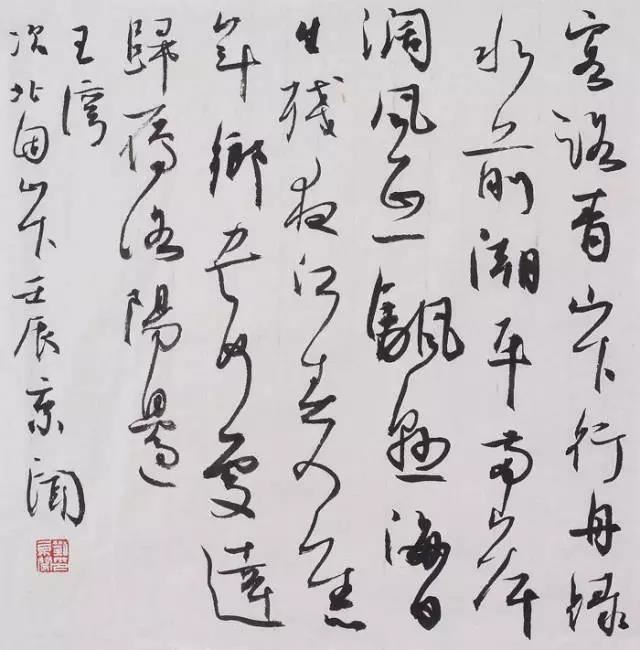 客路青山下行舟緑
水前潮平兩岸
濶風正一颿懸海日
生殘夜江春入舊
年鄉書何處達
歸雁洛陽邊
王灣
次北固山下壬辰京聞